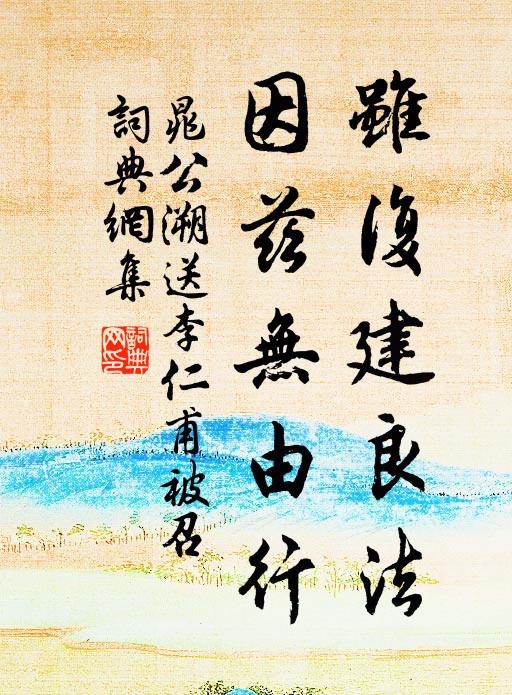 雖復建良法
因茲無由行
晁公溯送李仁甫被召
詞典網集
詞典網印